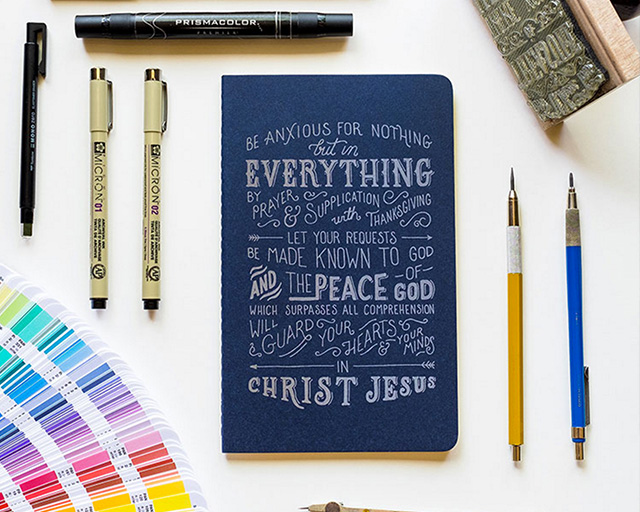 PRISMACOLOR
PREMIER
MONO
MICRON 01
MICRON 02
BE ANXIOUS FOR NOTHING
but in
EVERYTHING
BY PRAYER & SUPPLICATION with THANKSGIVING
LET YOUR REQUESTS
BE MADE KNOWN TO GOD
AND THE PEACE OF GOD
WHICH SURPASSES ALL COMPREHENSION
WILL GUARD YOUR HEARTS & YOUR MINDS
IN
CHRIST JESUS